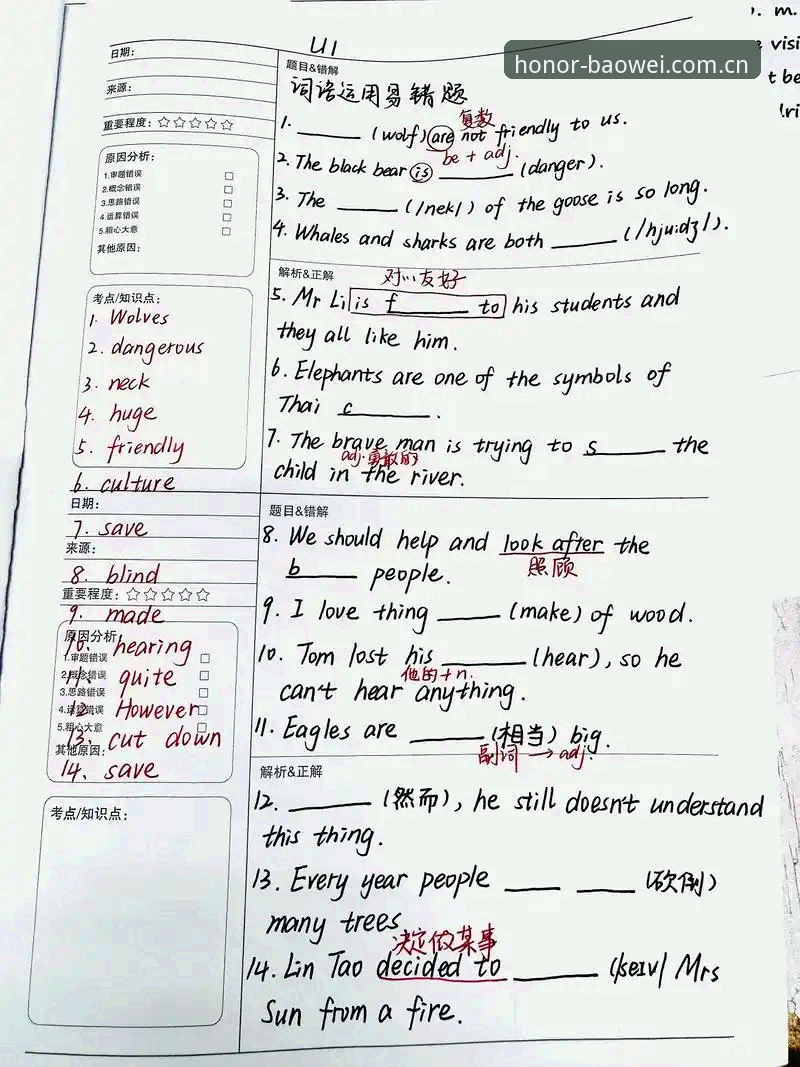 honor-baowei.com.cn
m.
visi
t be
U1
日期：
来源：
重要程度：☆☆☆☆☆
原因分析：
1.审题错误 □
2.概念错误 □
3.思路错误 □
4.运算错误 □
5.粗心大意 □
其他原因：
考点/知识点：
1. Wolves
2. dangerous
3. neck
4. huge
5. friendly
6. culture
日期：
7. save
来源：
8. blind
重要程度：☆☆☆☆☆
9. made
原因分析：
10. hearing
1.审题错误 □
11. quite
2.概念错误 □
3.思路错误 □
12. However
4.运算错误 □
5.粗心大意 □
13. cut down
其他原因：
14. save
考点/知识点：
题目&错解
词语运用易错题
复数
1. ______ (wolf) are not friendly to us.
be + adj.
2. The black bear is ______ (danger).
3. The ______ (/nek/) of the goose is so long.
4. Whales and sharks are both ______ (/hjuːdʒ/).
解析&正解
对…友好
5. Mr Li is f______ to his students and
they all like him.
6. Elephants are one of the symbols of
Thai c______.
7. The brave man is trying to s______ the
adj.勇敢的
child in the river.
题目&错解
8. We should help and look after the
照顾
b______ people.
9. I love thing ______ (make) of wood.
10. Tom lost his ______ (hear), so he
他的+n.
can't hear anything.
11. Eagles are ______ (相当) big.
副词 → adj.
解析&正解
12. ______ (然而), he still doesn't understand
this thing.
13. Every year people ____ ____ (砍倒)
many trees
决定做某事
14. Lin Tao decided to ______ (/seɪv/ Mrs
Sun from a fire.